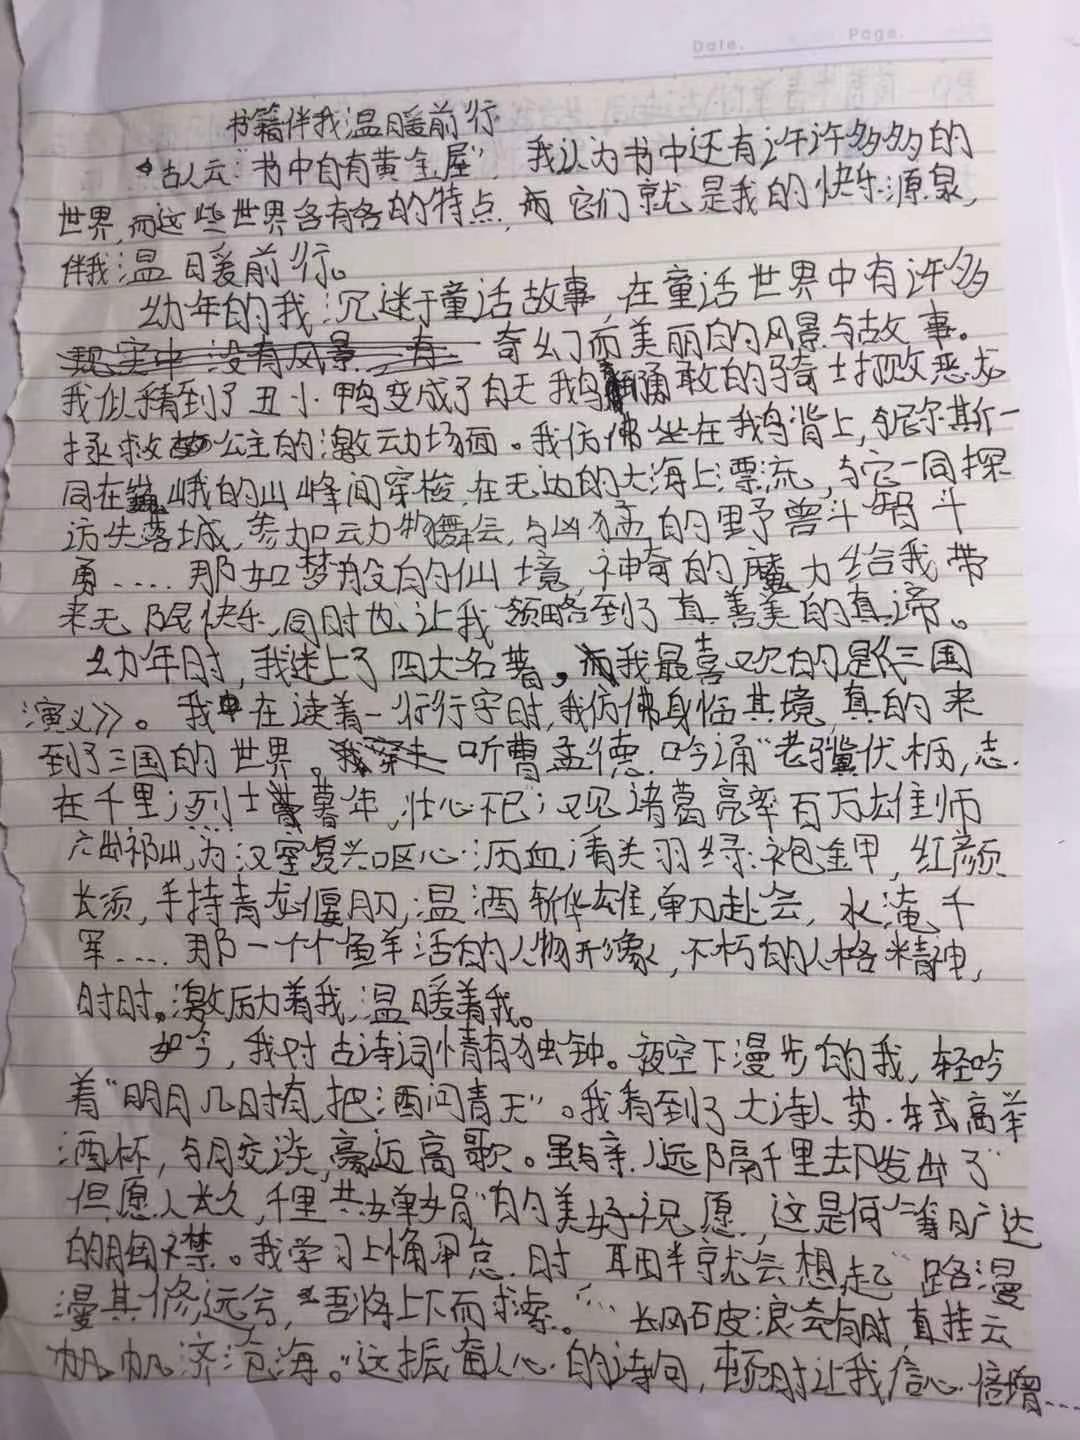 Date. Page.
书籍伴我温暖前行
古人云:"书中自有黄金屋",我认为书中还有许许多多的
世界,而这些世界各有各的特点,而它们就是我的快乐源泉,
伴我温暖前行。
幼年的我沉迷于童话故事,在童话世界中有许多
奇幻而美丽的风景与故事。
我似乎看到了丑小鸭变成了白天鹅,勇敢的骑士打败恶龙
拯救公主的激动场面。我仿佛坐在鹅鸟背上,与尼尔斯一
同在巍峨的山峰间穿梭,在无边的大海上漂流,与它一同探
访失落城,参加动物舞会,与凶猛的野兽斗智斗
勇....那如梦般的仙境,神奇的魔力给我带
来无限快乐,同时也让我领略到了真善美的真谛。
幼年时,我迷上了四大名著,而我最喜欢的是《三国
演义》。我在读着一行行字时,我仿佛身临其境,真的来
到了三国的世界。听曹孟德吟诵"老骥伏枥,志
在千里;烈士暮年,壮心不已";又见诸葛亮率百万雄师
六出祁山,为汉室复兴呕心沥血;看关羽绿袍金甲,红颜
长须,手持青龙偃月刀,温酒斩华雄,单刀赴会,水淹七
军....那一个个鲜活的人物形象,不朽的人格精神,
时时激励着我,温暖着我。
如今,我对古诗词情有独钟。夜空下漫步的我,轻吟
着"明月几时有,把酒问青天"。我看到了大诗人苏轼高举
酒杯,与月交谈,豪迈高歌。虽与亲人远隔千里却发出了"
但愿人长久,千里共婵娟"的美好祝愿,这是何等旷达
的胸襟。我学习上懈怠时,耳畔就会想起"路漫
漫其修远兮,吾将上下而求索。""长风破浪会有时,直挂云
帆帆济沧海。"这振奋人心的诗句,顿时让我信心倍增...